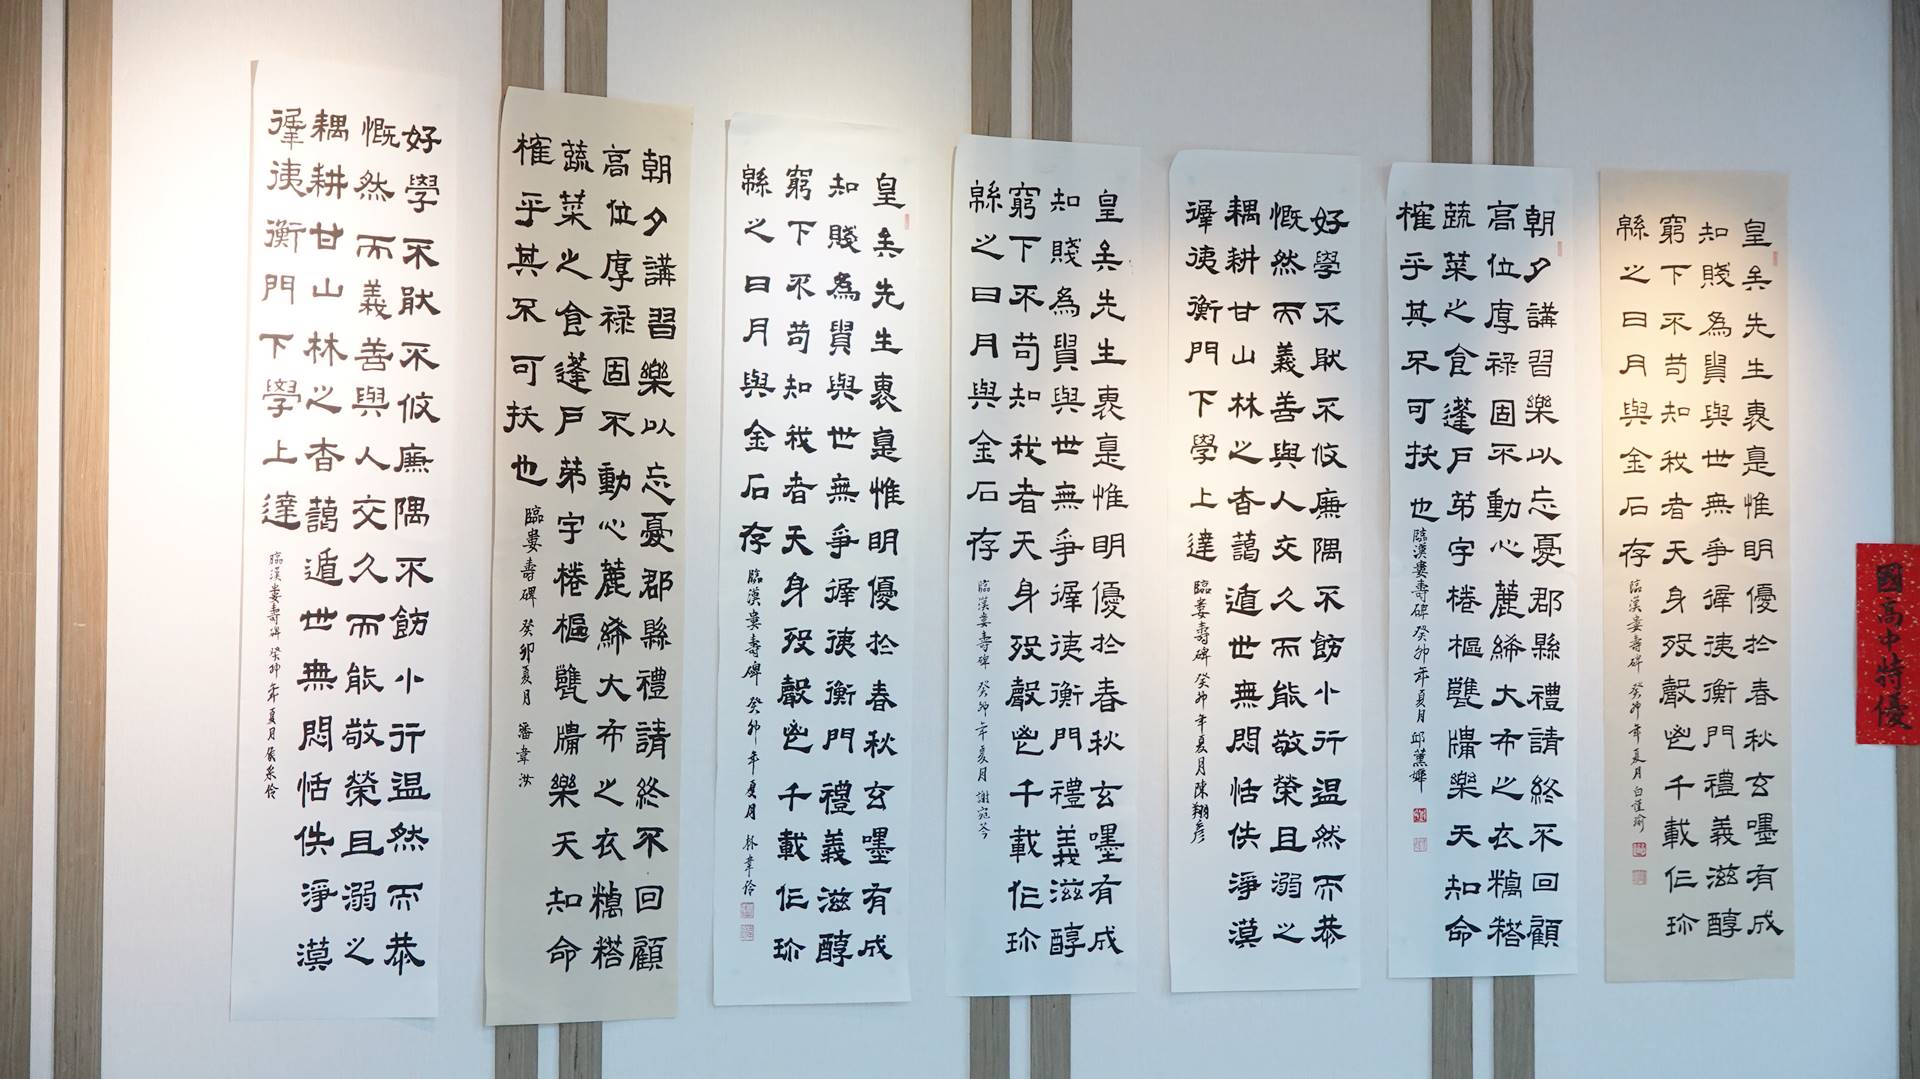 國高中特優
皇矣先生裹悳惟明優於春秋玄嘿有成
知賤為貴與世無爭徲侇衡門禮義滋醇
窮下不苟知我者天身歿聲鬯千載仁珎
緜之日月與金石存 臨漢婁壽碑 癸卯年夏月
朝夕講習樂以忘憂郡縣禮請終不回顧
高位厚祿固不動心麤絺大布之衣糲荅
蔬菜之食蓬戶茅宇棬樞甕牖樂天知命
榷乎其不可拔也 臨漢婁壽碑 癸卯年夏月 邱薰嬅
好學不猒不攸廉隅不飭小行温然而恭
慨然而義善與人交久而能敬榮且溺之
耦耕甘山林之杳藹遁世無悶恬佚淨漠
徲侇衡門下學上達 臨婁壽碑 癸卯年夏月 陳翔彥
皇矣先生裹悳惟明優於春秋玄嘿有成
知賤為貴與世無爭徲侇衡門禮義滋醇
窮下不苟知我者天身歿聲鬯千載仁珎
緜之日月與金石存 臨漢婁壽碑 癸卯年夏月 謝宛芩
皇矣先生裹悳惟明優於春秋玄嘿有成
知賤為貴與世無爭徲侇衡門禮義滋醇
窮下不苟知我者天身歿聲鬯千載仁珎
緜之日月與金石存 臨漢婁壽碑 癸卯年夏月 林韋伶
朝夕講習樂以忘憂郡縣禮請終不回顧
高位厚祿固不動心麤絺大布之衣糲荅
蔬菜之食蓬戶茅宇棬樞甕牖樂天知命
榷乎其不可拔也 臨婁壽碑 癸卯夏月 潘韋汝
好學不猒不攸廉隅不飭小行温然而恭
慨然而義善與人交久而能敬榮且溺之
耦耕甘山林之杳藹遁世無悶恬佚淨漠
徲侇衡門下學上達 臨漢婁壽碑 癸卯年夏月